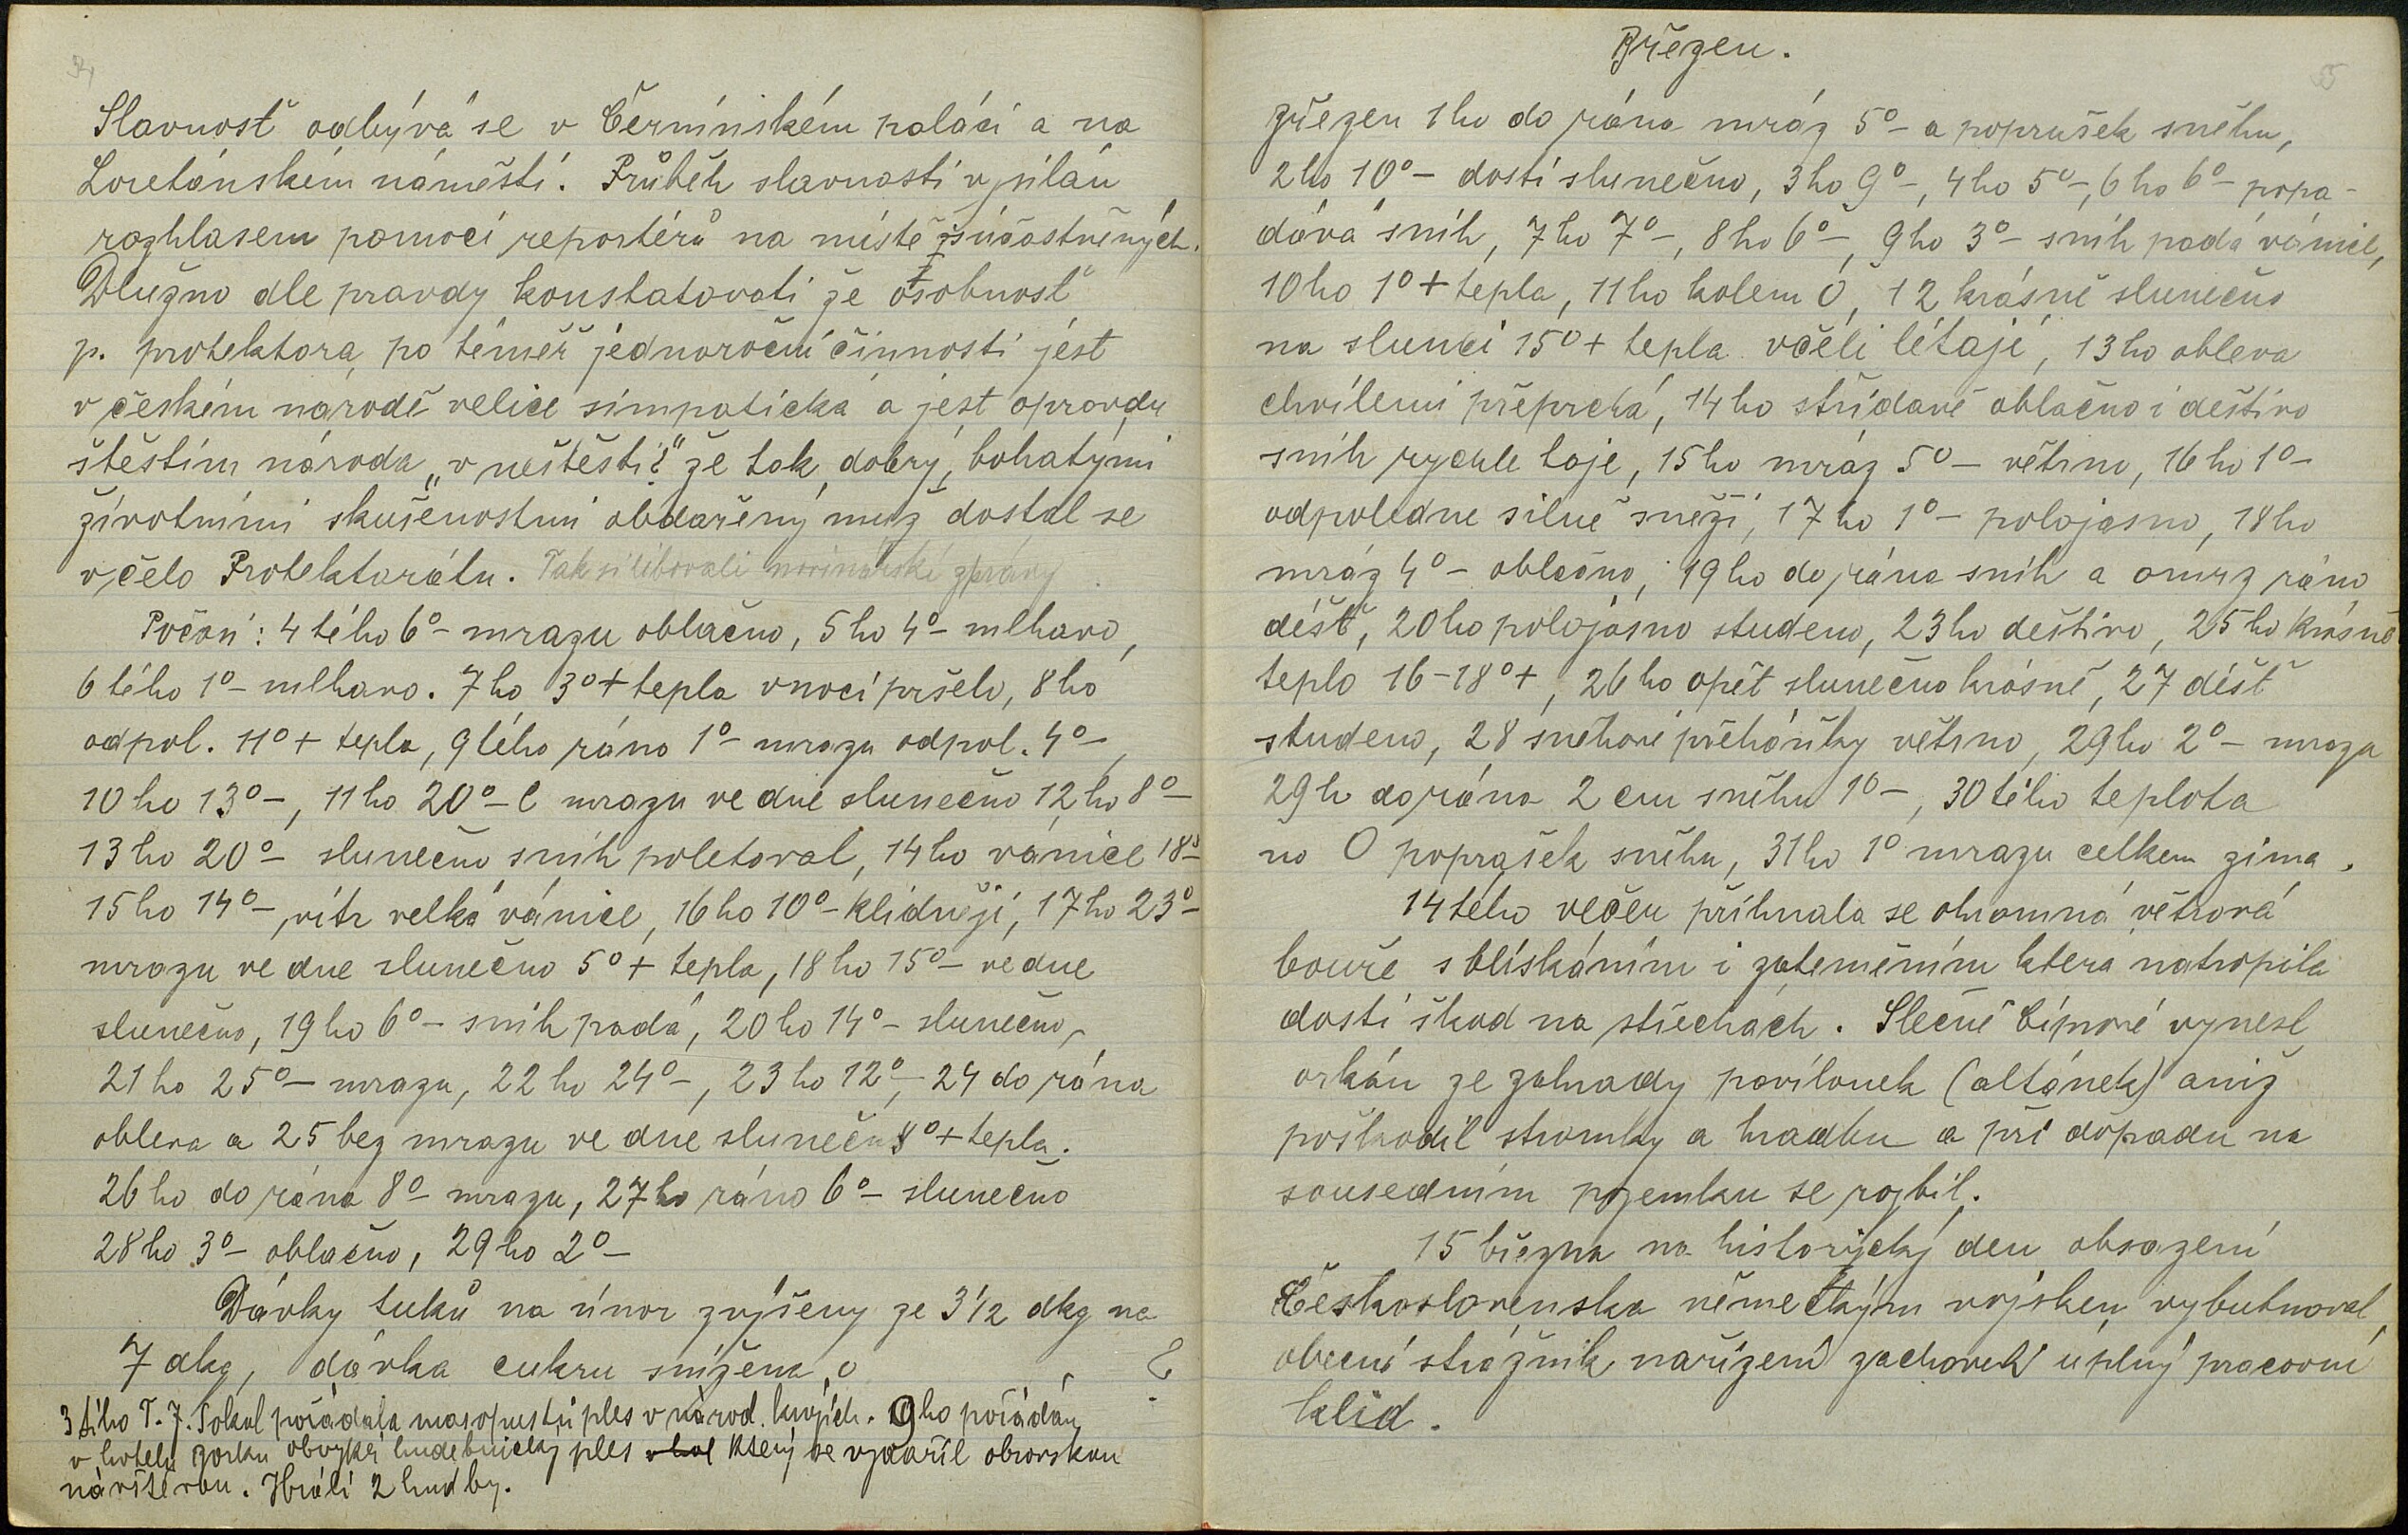 Slavnosť odbývá se v Černínském paláci a na
Loretánském náměstí. Průběh slavnosti vysílán
rozhlasem pomocí reportérů na místě súčastněných.
Dlužno dle pravdy konstatovati že osobnosť
p. protektora, po téměř jednoroční činnosti jest
v českém národě velice simpatická a jest opravdu
štěstím národa „v neštěstí?“ že tak dobrý, bohatými
životními skušenostmi obdařený muž dostal se
v čelo Protektorátu. Tak si libovali novinářské zprávy.
Počasí: 4 tého 6°- mrazu oblačno, 5 ho 4°- mlhavo,
6 tého 1°- mlhavo. 7 ho 3°+ tepla v noci pršelo, 8 ho
odpol. 11°+ tepla, 9 tého ráno 1°- mrazu odpol. 4°-,
10 ho 13°-, 11 ho 20°- C mrazu ve dne slunečno 12 ho 8°-
13 ho 20°- slunečno sníh poletoval, 14 ho vánice 18°-
15 ho 14°-, vítr velká vánice, 16 ho 10°- klidněji, 17 ho 23°-
mrazu ve dne slunečno 5°+ tepla, 18 ho 15°- ve dne
slunečno, 19 ho 6°- sníh padá, 20 ho 14°- slunečno,
21 ho 25°- mrazu, 22 ho 24°-, 23 ho 12°-, 24 do rána
obleva a 25 bez mrazu ve dne slunečno 8°+ tepla.
26 ho do rána 8°- mrazu, 27 ho ráno 6°- slunečno
28 ho 3°- oblačno, 29 ho 2°-
Dávky tuků na únor zvýšeny ze 3 1/2 dkg na
7 dkg, dávka cukru snížena o ?
3 tího T. J. Sokol pořádala masopustní ples v národ. krojích. 9 ho pořádán
v hotelu obvyklý hudebnický ples který se vydařil obrovskou
návštěvou. Hráli 2 hudby.
Březen.
Březen 1 ho do rána mráz 5°- a poprašek sněhu,
2 ho 10°- dosti slunečno, 3 ho 9°-, 4 ho 5°-, 6 ho 6°- popa-
dává sníh, 7 ho 7°-, 8 ho 6°-, 9 ho 3°- sníh padá vánice,
10 ho 1°+ tepla, 11 ho kolem 0, 12 krásně slunečno
na slunci 15°+ tepla včéli létají, 13 ho obleva
chvílemi přeprchá, 14 ho střídavě oblačno i deštivo
sníh rychle taje, 15 ho mráz 5°- větrno, 16 ho 1°-
odpoledne silně sněží, 17 ho 1°- polojasno, 18 ho
mráz 4°- oblačno, 19 ho do rána sníh a omrz ráno
déšť, 20 ho polojasno studeno, 23 ho deštivo, 25 ho krásně
teplo 16-18°+, 26 ho opět slunečno krásně, 27 déšť
studeno, 28 sněhové přeháňky větrno, 29 ho 2°- mrazu
29 h do rána 2 cm sněhu 1°-, 30 tého teplota
na 0 poprašek sněhu, 31 ho 1° mrazu celkem zima.
14 tého večer přihnala se ohromná větrová
bouře s blískáním i zateměním která natropila
dosti škod na střechách. Slečně vynesl
orkán ze zahrady pavilonek (altánek) aniž
poškodil stromky a hradbu a při dopadu na
sousedním pozemku se rozbil.
15 března na historický den obsazení
Československa německým vojskem vybubnoval
obecní strážník nařízení zachovati úplný pracovní
klid.